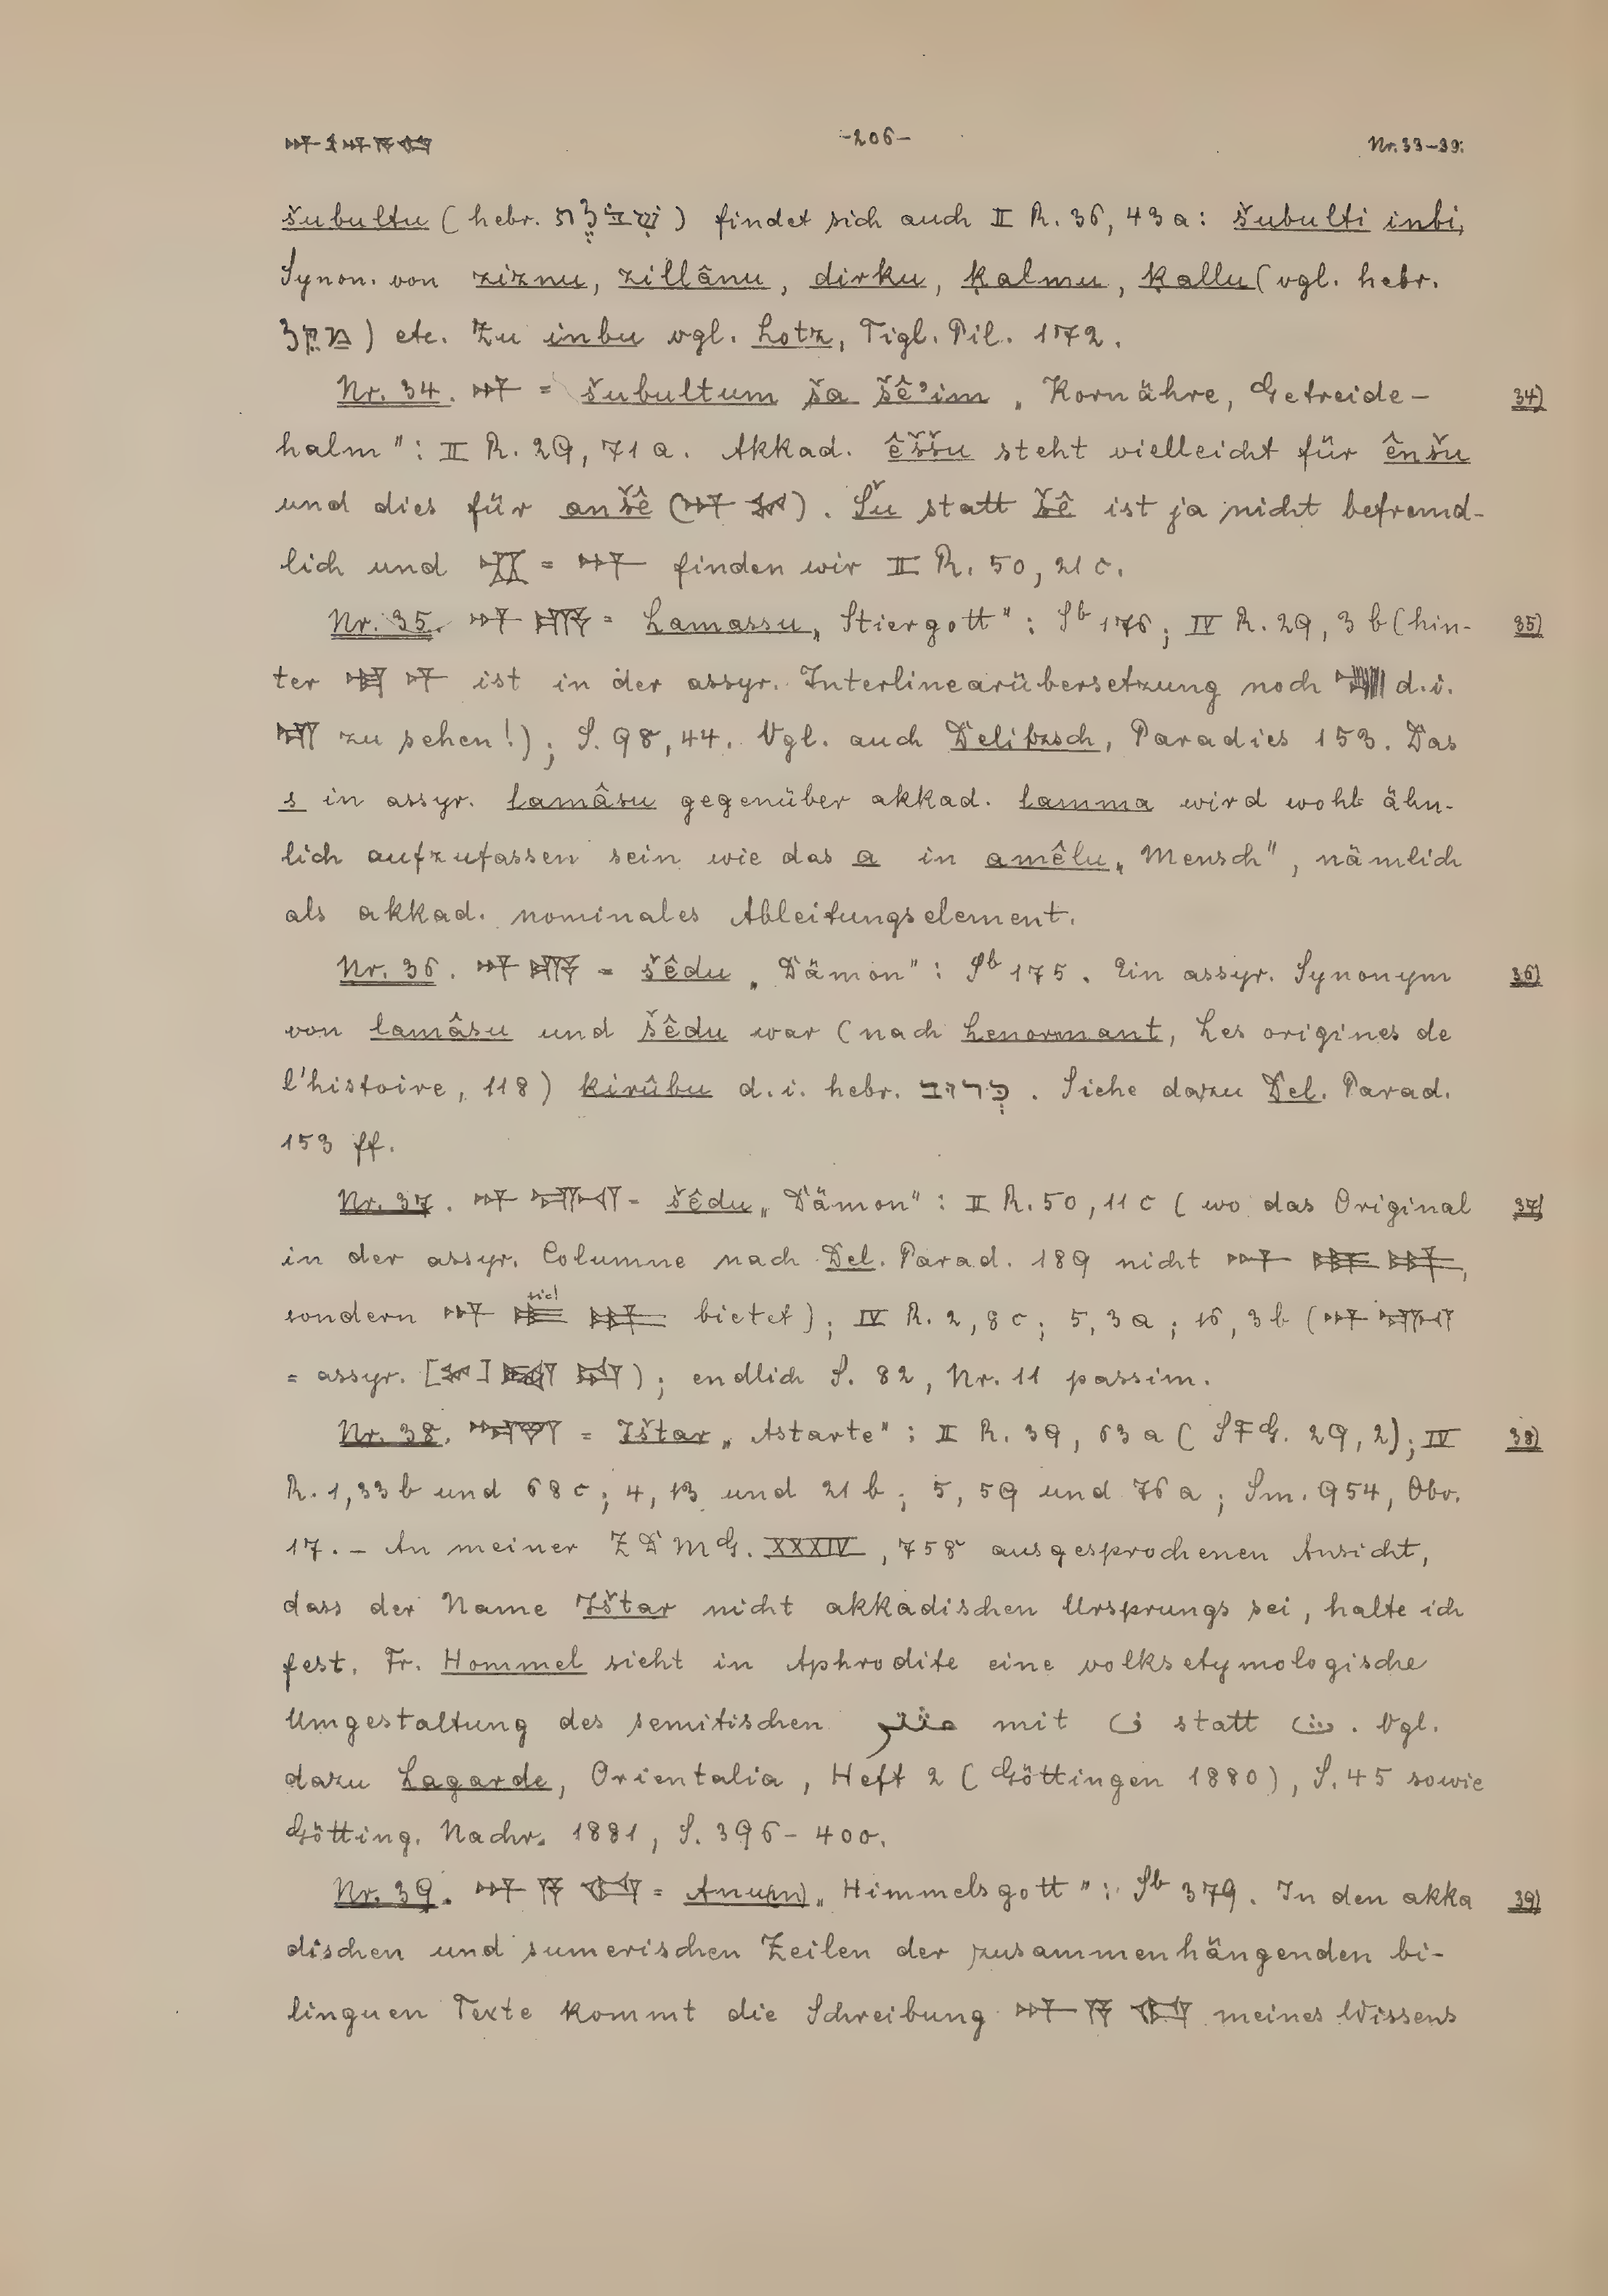 𒀭 – 𒀭𒀀𒉏 -206- Nr. 33–39.
šubultu (hebr. שִׁבֹּלֶת) findet sich auch II R. 36, 43a: šubulti inbi,
Synon. von ziznu, zillânu, dirku, kalmu, kallu (vgl. hebr.
) etc. Zu inbu vgl. Lotz, Tigl. Pil. 172.
Nr. 34. 𒀭 = šubultum ša šê'im „Kornähre, Getreide- 34)
halm": II R. 29, 71a. Akkad. êššu steht vielleicht für ênšu
und dies für anšê (𒀭 𒊺). Šu statt šê ist ja nicht befremd-
lich und = 𒀭 finden wir II R. 50, 21c.
Nr. 35. 𒀭 = Lamassu „Stiergott": Sᵇ 176; IV R. 29, 3b (hin- 35)
ter ist in der assyr. Interlinearübersetzung noch d.i.
zu sehen!); S. 98, 44. Vgl. auch Delitzsch, Paradies 153. Das
s in assyr. lamâsu gegenüber akkad. lamma wird wohl ähn-
lich aufzufassen sein wie das a in amêlu „Mensch", nämlich
als akkad. nominales Ableitungselement.
Nr. 36. 𒀭 = šêdu „Dämon": Sᵇ 175. Ein assyr. Synonym 36)
von lamâsu und šêdu war (nach Lenormant, Les origines de
l'histoire, 118) kirûbu d.i. hebr. כְּרוּב. Siehe dazu Del. Parad.
153 ff.
Nr. 37. 𒀭 = šêdu „Dämon": II R. 50, 11c (wo das Original 37)
in der assyr. Columne nach Del. Parad. 189 nicht 𒀭
sondern 𒀭 sic! bietet); IV R. 2, 8c; 5, 3a; 16, 3b (𒀭
= assyr. [𒊺] ); endlich S. 82, Nr. 11 passim.
Nr. 38. 𒀭 = Ištar „Astarte": II R. 39, 63a (SFG. 29, 2); IV 38)
R. 1, 33b und 68c; 4, 13 und 21b; 5, 59 und 76a; Sm. 954, Obv.
17. – An meiner ZDMG. XXXIV, 758 ausgesprochenen Ansicht,
dass der Name Ištar nicht akkadischen Ursprungs sei, halte ich
fest. Fr. Hommel sieht in Aphrodite eine volksetymologische
Umgestaltung des semitischen عثتر mit ف statt ث. Vgl.
dazu Lagarde, Orientalia, Heft 2 (Göttingen 1880), S. 45 sowie
Götting. Nachr. 1881, S. 396–400.
Nr. 39. 𒀭 𒀀 𒉏 = Anu(m) „Himmelsgott": Sᵇ 379. In den akka 39)
dischen und sumerischen Zeilen der zusammenhängenden bi-
linguen Texte kommt die Schreibung 𒀭 𒀀 𒉏 meines Wissens